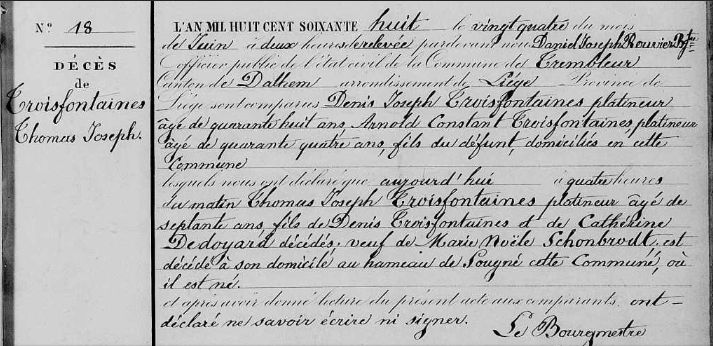 N.º 18
DÉCÈS
de
Troisfontaines
Thomas Joseph.
L'AN MIL HUIT CENT SOIXANTE huit le vingt quatre du mois
de Juin à deux heures de relevée pardevant nous Daniel Joseph Rouvier
officier public de l'état civil de la Commune de Trembleur
Canton de Dalhem arrondissement de Liége Province de
Liége sont comparus Denis Joseph Troisfontaines platineur
âgé de quarante huit ans, Arnold Constant Troisfontaines, platineur
âgé de quarante quatre ans, fils du défunt, domiciliés en cette
Commune
lesquels nous ont déclaré que aujourd'hui à quatre heures
du matin Thomas Joseph Troisfontaines platineur âgé de
septante ans, fils de Denis Troisfontaines et de Cathérine
Dedoyard décédés, veuf de Marie Noële Schonbrodt, est
décédé à son domicile au hameau de cette Commune, où
il est né.
et après avoir donné lecture du présent acte aux comparants, ont
déclaré ne savoir écrire ni signer.
Le Bourgmestre